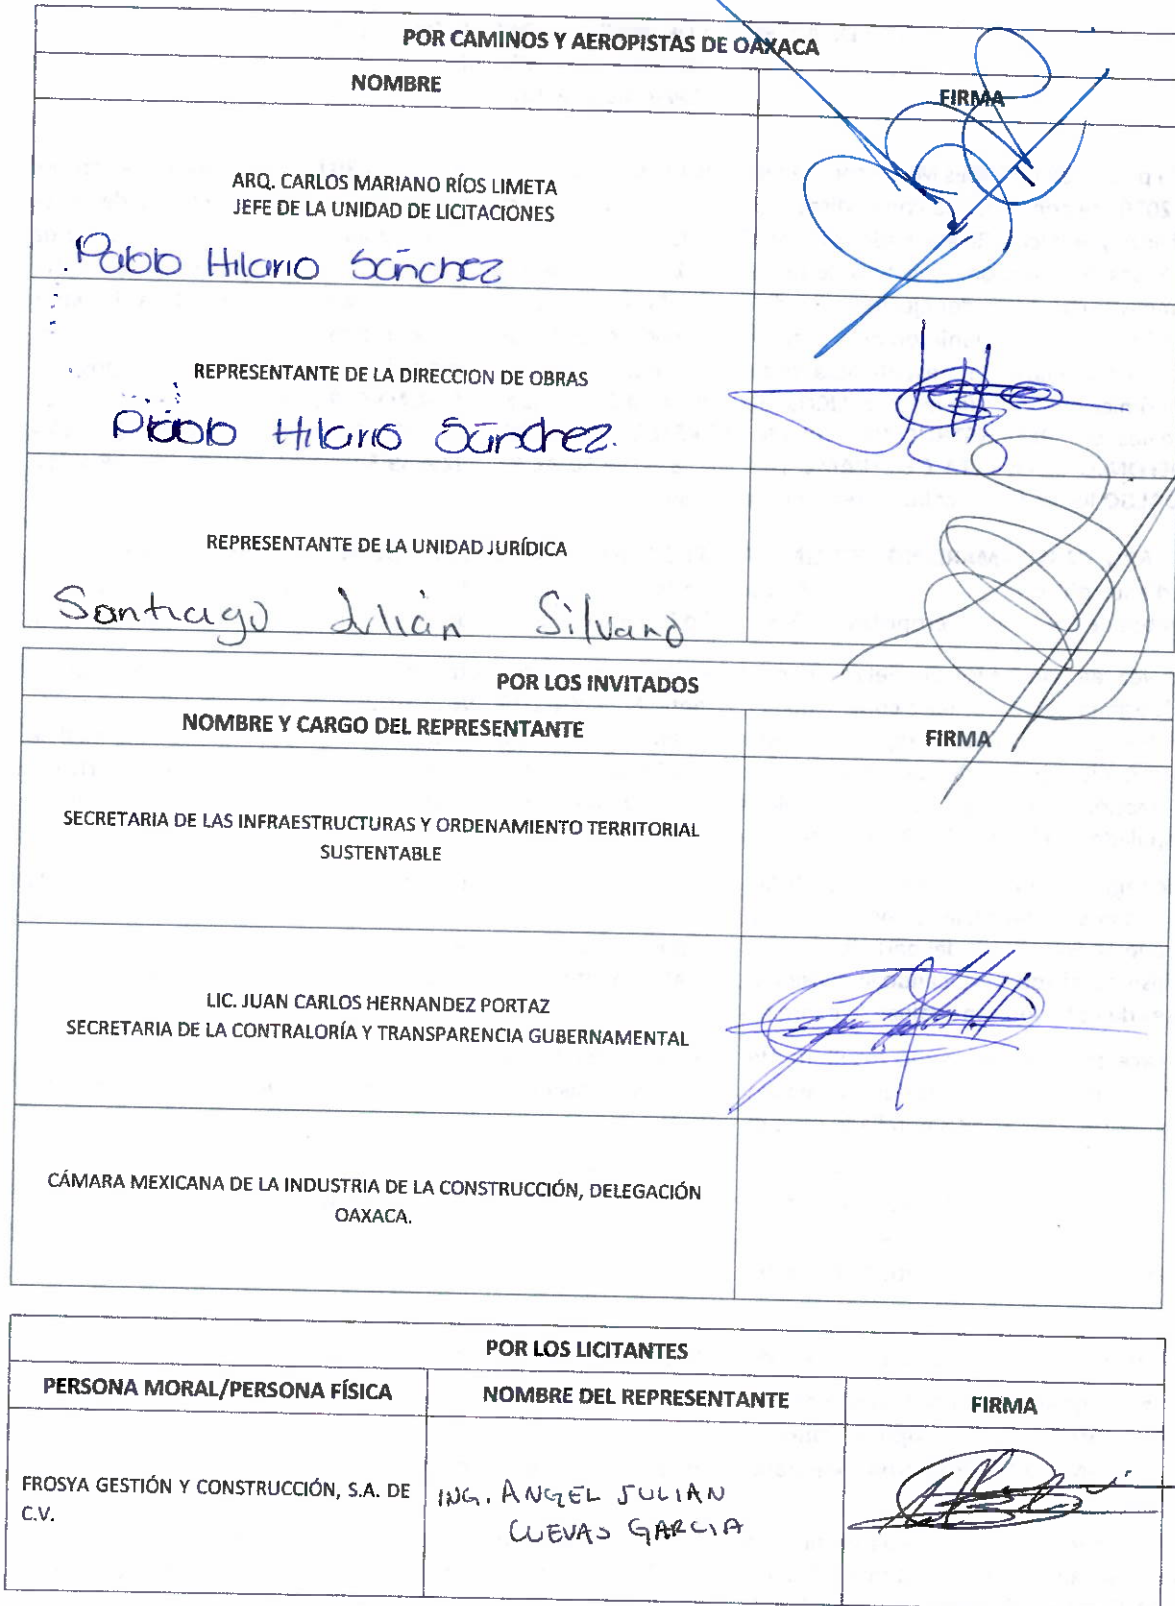 POR CAMINOS Y AEROPISTAS DE OAXACA
NOMBRE
FIRMA
ARQ. CARLOS MARIANO RÍOS LIMETA
JEFE DE LA UNIDAD DE LICITACIONES
Pablo Hilario Sánchez
REPRESENTANTE DE LA DIRECCION DE OBRAS
Pablo Hilario Sánchez.
REPRESENTANTE DE LA UNIDAD JURÍDICA
Santiago Julián Silvano
POR LOS INVITADOS
NOMBRE Y CARGO DEL REPRESENTANTE
FIRMA
SECRETARIA DE LAS INFRAESTRUCTURAS Y ORDENAMIENTO TERRITORIAL
SUSTENTABLE
LIC. JUAN CARLOS HERNANDEZ PORTAZ
SECRETARIA DE LA CONTRALORÍA Y TRANSPARENCIA GUBERNAMENTAL
CÁMARA MEXICANA DE LA INDUSTRIA DE LA CONSTRUCCIÓN, DELEGACIÓN
OAXACA.
POR LOS LICITANTES
PERSONA MORAL/PERSONA FÍSICA
NOMBRE DEL REPRESENTANTE
FIRMA
FROSYA GESTIÓN Y CONSTRUCCIÓN, S.A. DE
C.V.
ING. ANGEL JULIAN
CUEVAS GARCIA